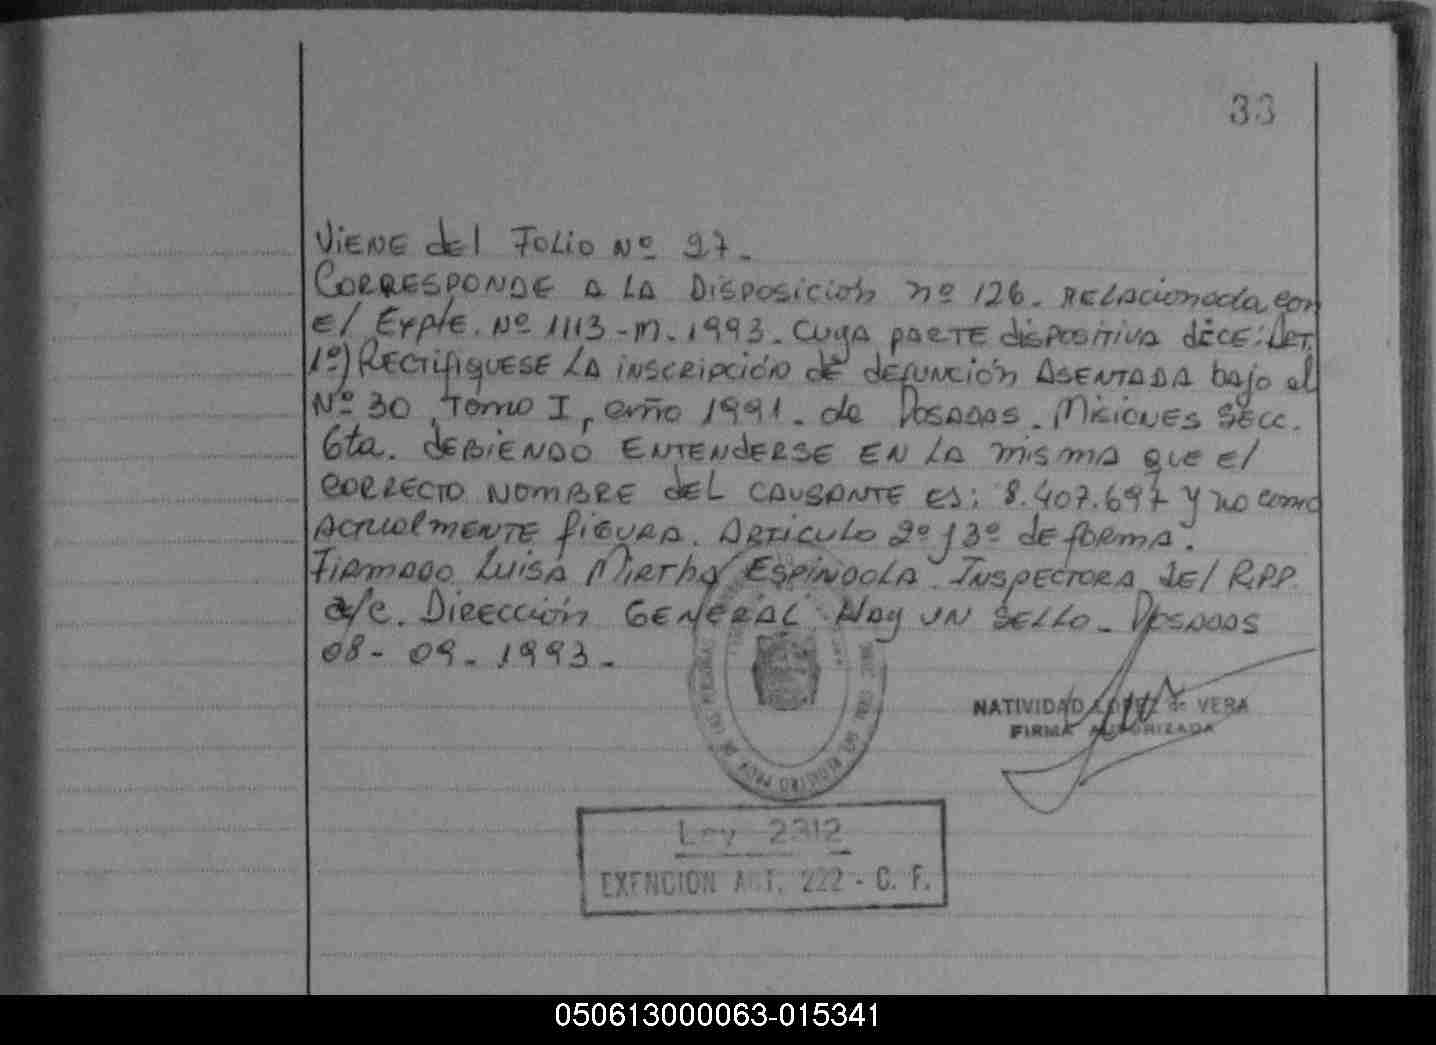 33
Viene del Folio Nº 27.
Corresponde a la Disposición nº 126. Relacionada con
el Expte. Nº 1113-M. 1993. Cuya parte dispositiva dice: Art.
1º) Rectifiquese la inscripción de defunción asentada bajo el
Nº 30, Tomo I, año 1991. de Posadas. Misiones Secc.
6ta. debiendo entenderse en la misma que el
correcto nombre del causante es: 8.407.697 y no como
actualmente figura. Articulo 2º y 3º de forma.
Firmado Luisa Mirtha Espindola. Inspectora del R.P.P.
a/c. Dirección General. Hay un sello. Posadas
08-09-1993.
NATIVIDAD LOPEZ de VERA
FIRMA AUTORIZADA
REGISTRO PROV. DE LAS
Ley 2312
EXENCION ART. 222 - C. F.
050613000063-015341